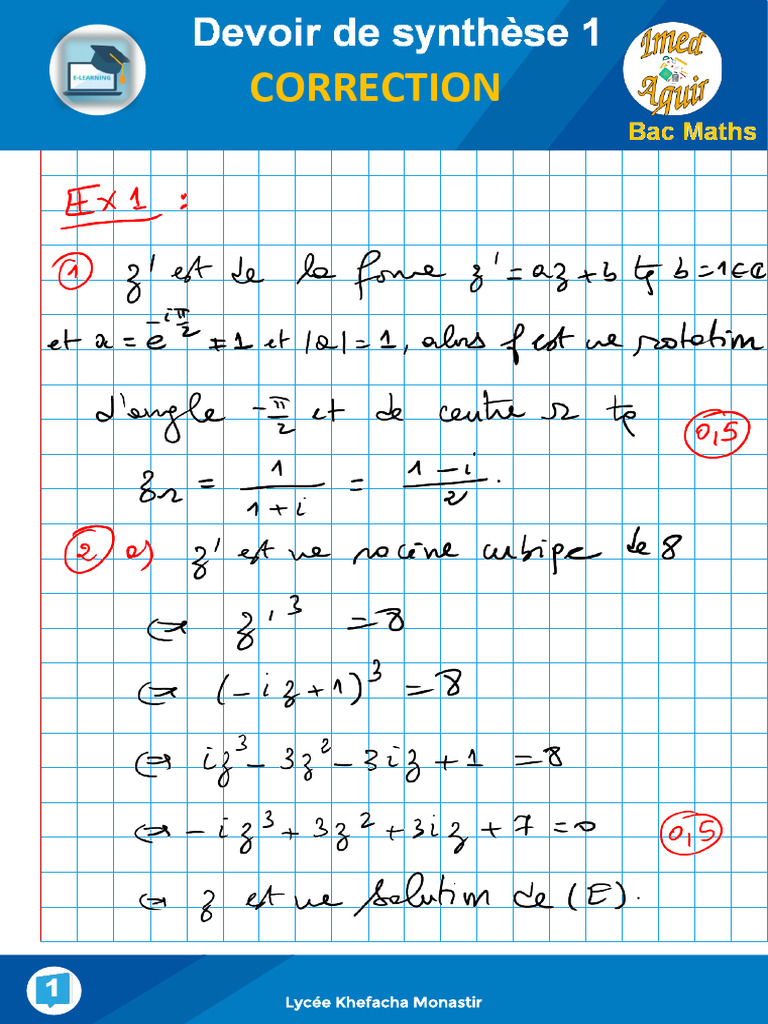 Devoir de synthèse 1
CORRECTION
E-LEARNING
Imed
Aguir
Bac Maths
Ex 1 :
① z' est de la forme z' = az + b tq b = 1 ∈ ℂ
et a = e^{-iπ/2} ≠ 1 et |a| = 1, alors f est une rotation
d'angle -π/2 et de centre Ω tq
0,5
z_Ω = 1/(1+i) = (1-i)/2.
② a) z' est une racine cubique de 8
⇔ z'³ = 8
⇔ (-iz+1)³ = 8
⇔ iz³ - 3z² - 3iz + 1 = 8
⇔ -iz³ + 3z² + 3iz + 7 = 0
0,5
⇔ z est une solution de (E).
1
Lycée Khefacha Monastir